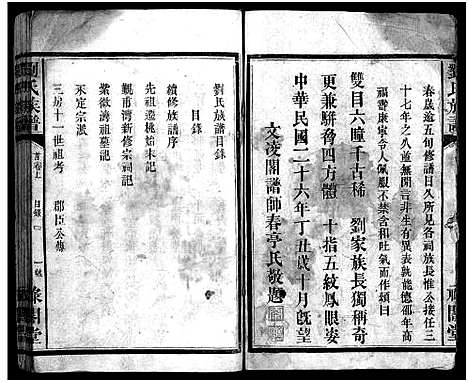 劉氏族譜
春歲逾五旬修譜日久所見各祠族長惟公接任三
十七年之久並無閒言非生有異表孰能德卲年高
福壽康寧令人佩覩不禁含和吐氣而作頌曰
雙目六瞳千古稀　劉家族長獨稱奇
更兼駢脅四方體　十指五紋鳳眼姿
中華民國二十六年丁丑歲十月既望
文凌閣譜師春亭氏敬題
祿閣堂
劉氏族譜目錄
目錄
續修族譜序
先祖遷桃始末記
觀市灣新修宗祠記
紫微灣祖墓記
永定宗派
三房十一世祖考　郡臣公傳
劉氏族譜
首卷上
目錄
一
一號
祿閣堂